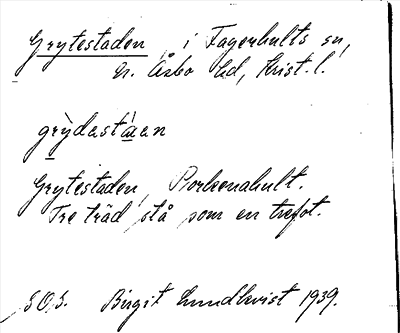 Grytestaden, i Fagerhults sn,
n. Åsbo hd, Krist. l.
grỳdastàan
Grytestaden, Porkenahult.
Tre träd stå som en trefot.
S.O.S. Birgit Lundkvist 1939.